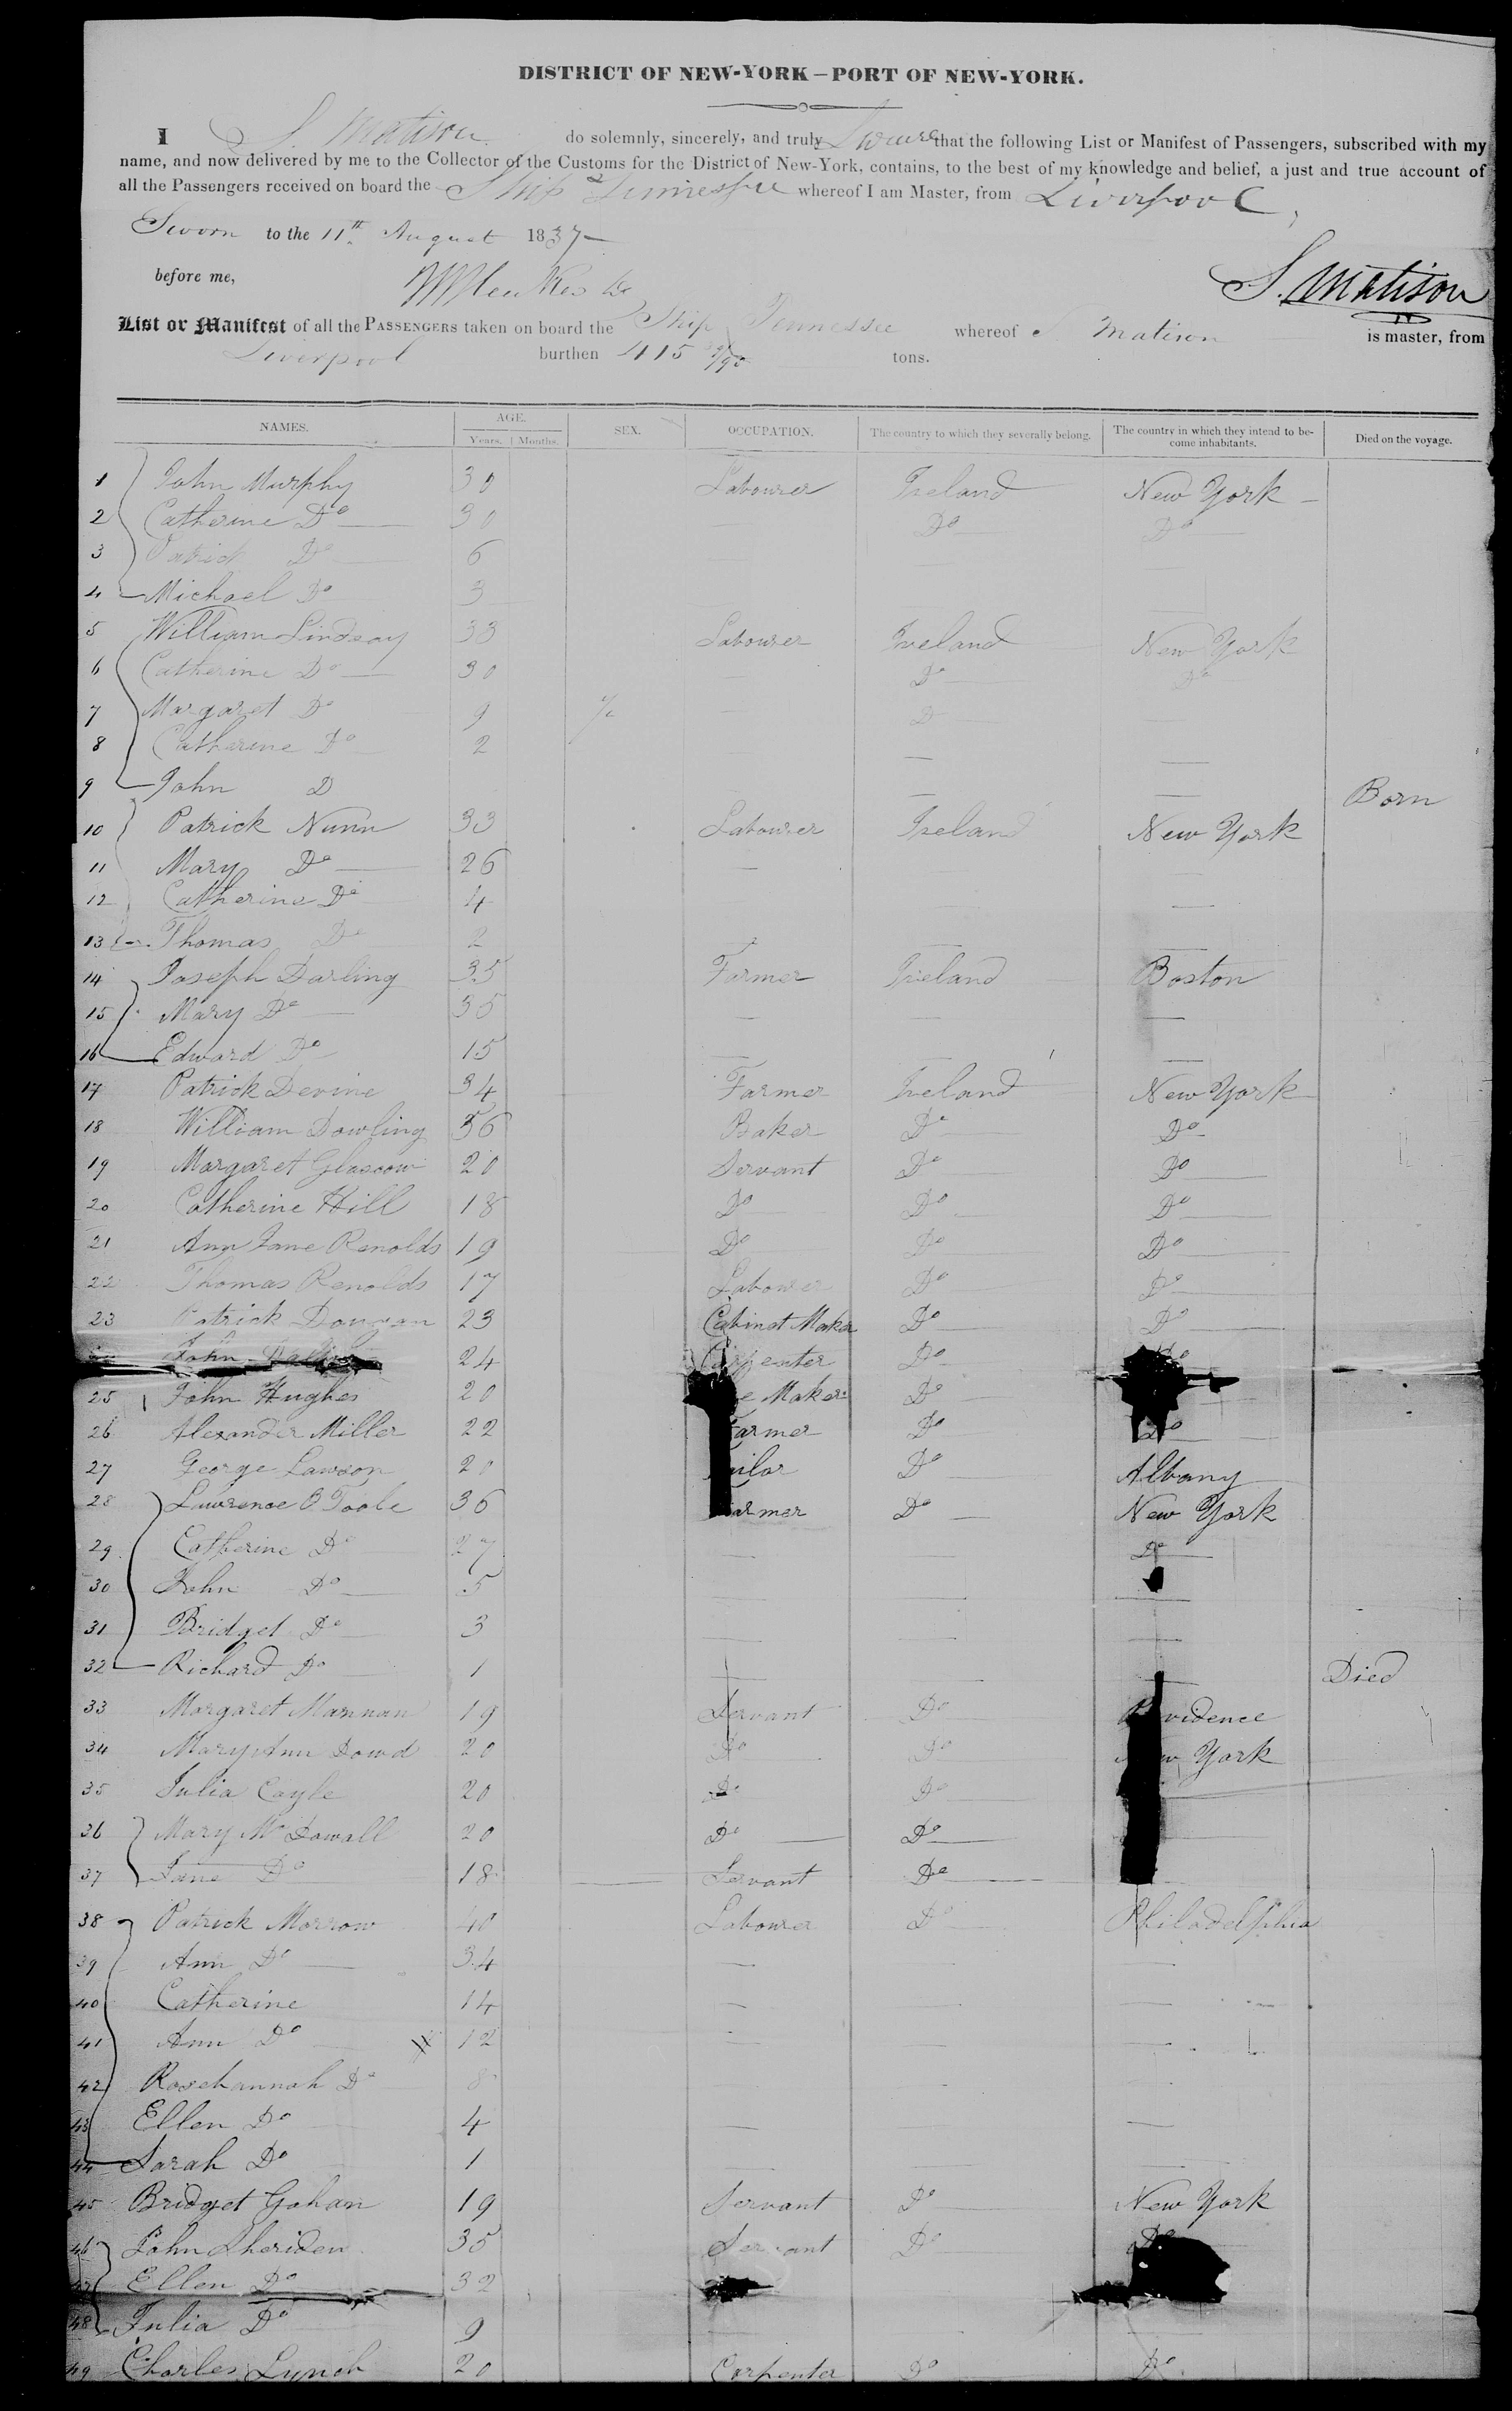 DISTRICT OF NEW-YORK—PORT OF NEW-YORK.
I S. Matison do solemnly, sincerely, and truly Swear that the following List or Manifest of Passengers, subscribed with my
name, and now delivered by me to the Collector of the Customs for the District of New-York, contains, to the best of my knowledge and belief, a just and true account of
all the Passengers received on board the Ship Tennessee whereof I am Master, from Liverpool
Sworn to the 11th August 1837
before me,
S. Matison
List or Manifest of all the PASSENGERS taken on board the Ship Tennessee whereof S. Matison is master, from
Liverpool burthen 415 tons.
NAMES. AGE. SEX. OCCUPATION. The country to which they severally belong. The country in which they intend to be- Died on the voyage.
Years. Months. come inhabitants.
1 John Murphy 30 Labourer Ireland New York
2 Catherine Do 30 Do Do
3 Patrick Do 6
4 Michael Do 3
5 William Lindsay 33 Labourer Ireland New York
6 Catherine Do 30 Do Do
7 Margaret Do 9 D
8 Catherine Do 2
9 John D Born
10 Patrick Nunn 33 Labourer Ireland New York
11 Mary Do 26
12 Catherine Do 4
13 Thomas Do 2
14 Joseph Darling 35 Farmer Ireland Boston
15 Mary Do 35
16 Edward Do 15
17 Patrick Devine 34 Farmer Ireland New York
18 William Dowling 36 Baker Do Do
19 Margaret Glascow 20 Servant Do Do
20 Catherine Hill 18 Do Do Do
21 Ann Jane Renolds 19 Do Do Do
22 Thomas Renolds 17 Labourer Do Do
23 Patrick 23 Cabinet Maker Do Do
John 24 Carpenter Do Do
25 John Hughes 20 Maker Do
26 Alexander Miller 22 Farmer Do Do
27 George Lawson 20 Do Albany
28 Lawrence O Toole 36 Farmer Do New York
29 Catherine Do 27 Do
30 John Do 5
31 Bridget Do 3
32 Richard Do 1 Died
33 Margaret Mannan 19 Servant Do Providence
34 Mary Ann Dowd 20 Do Do New York
35 Julia Coyle 20 Do Do
36 Mary McDowall 20 Do Do
37 Jane Do 18 Servant Do
38 Patrick Morrow 40 Labourer Do Philadelphia
39 Ann Do 34
40 Catherine 14
41 Ann Do 12
42 Rosehannah Do 8
43 Ellen Do 4
44 Sarah Do 1
45 Bridget Gahan 19 Servant Do New York
46 John Sheriden 35 Servant Do Do
47 Ellen Do 32
48 Julia Do 9
49 Charles Lynch 20 Carpenter Do Do